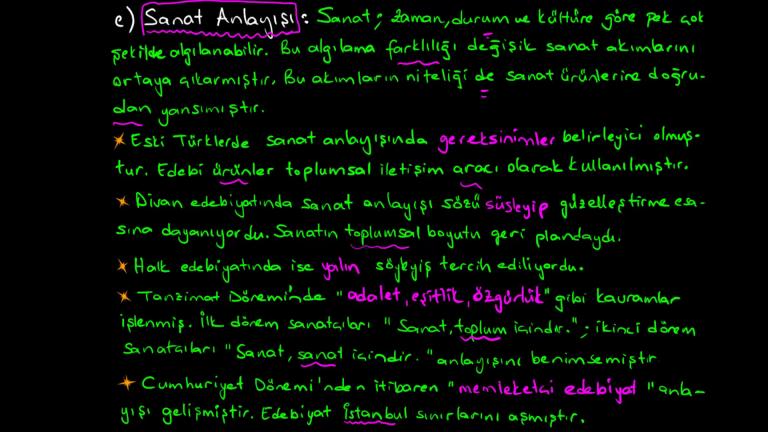 e) Sanat Anlayışı: Sanat; zaman, durum ve kültüre göre pek çok
şekilde algılanabilir. Bu algılama farklılığı değişik sanat akımlarını
ortaya çıkarmıştır. Bu akımların niteliği de sanat ürünlerine doğru-
dan yansımıştır.
★ Eski Türklerde sanat anlayışında gereksinimler belirleyici olmuş-
tur. Edebi ürünler toplumsal iletişim aracı olarak kullanılmıştır.
★ Divan edebiyatında sanat anlayışı sözü süsleyip güzelleştirme esa-
sına dayanıyordu. Sanatın toplumsal boyutu geri plandaydı.
★ Halk edebiyatında ise yalın söyleyiş tercih ediliyordu.
★ Tanzimat Dönemi'nde "adalet, eşitlik, özgürlük" gibi kavramlar
işlenmiş. İlk dönem sanatçıları "Sanat, toplum içindir."; ikinci dönem
sanatçıları "Sanat, sanat içindir." anlayışını benimsemiştir
★ Cumhuriyet Dönemi'nden itibaren "memleketçi edebiyat" anla-
yışı gelişmiştir. Edebiyat İstanbul sınırlarını aşmıştır.